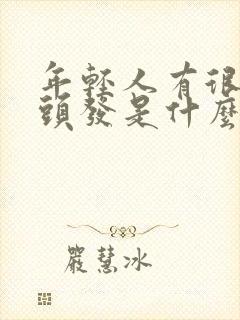 年輕人有很
頭發是什麼
嚴慧冰